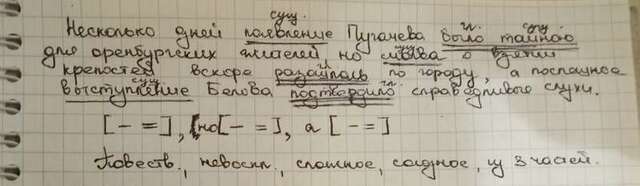 сущ.
Несколько дней появление Пугачева было тайною
для оренбургских жителей но молва о взятии
крепостей вскоре разошлась по городу, а поспешное
выступление Белова подтвердило справедливость слухи.
[– =], но [– =], а [– =]
Повеств., невоскл., сложное, союзное, из 3 частей.